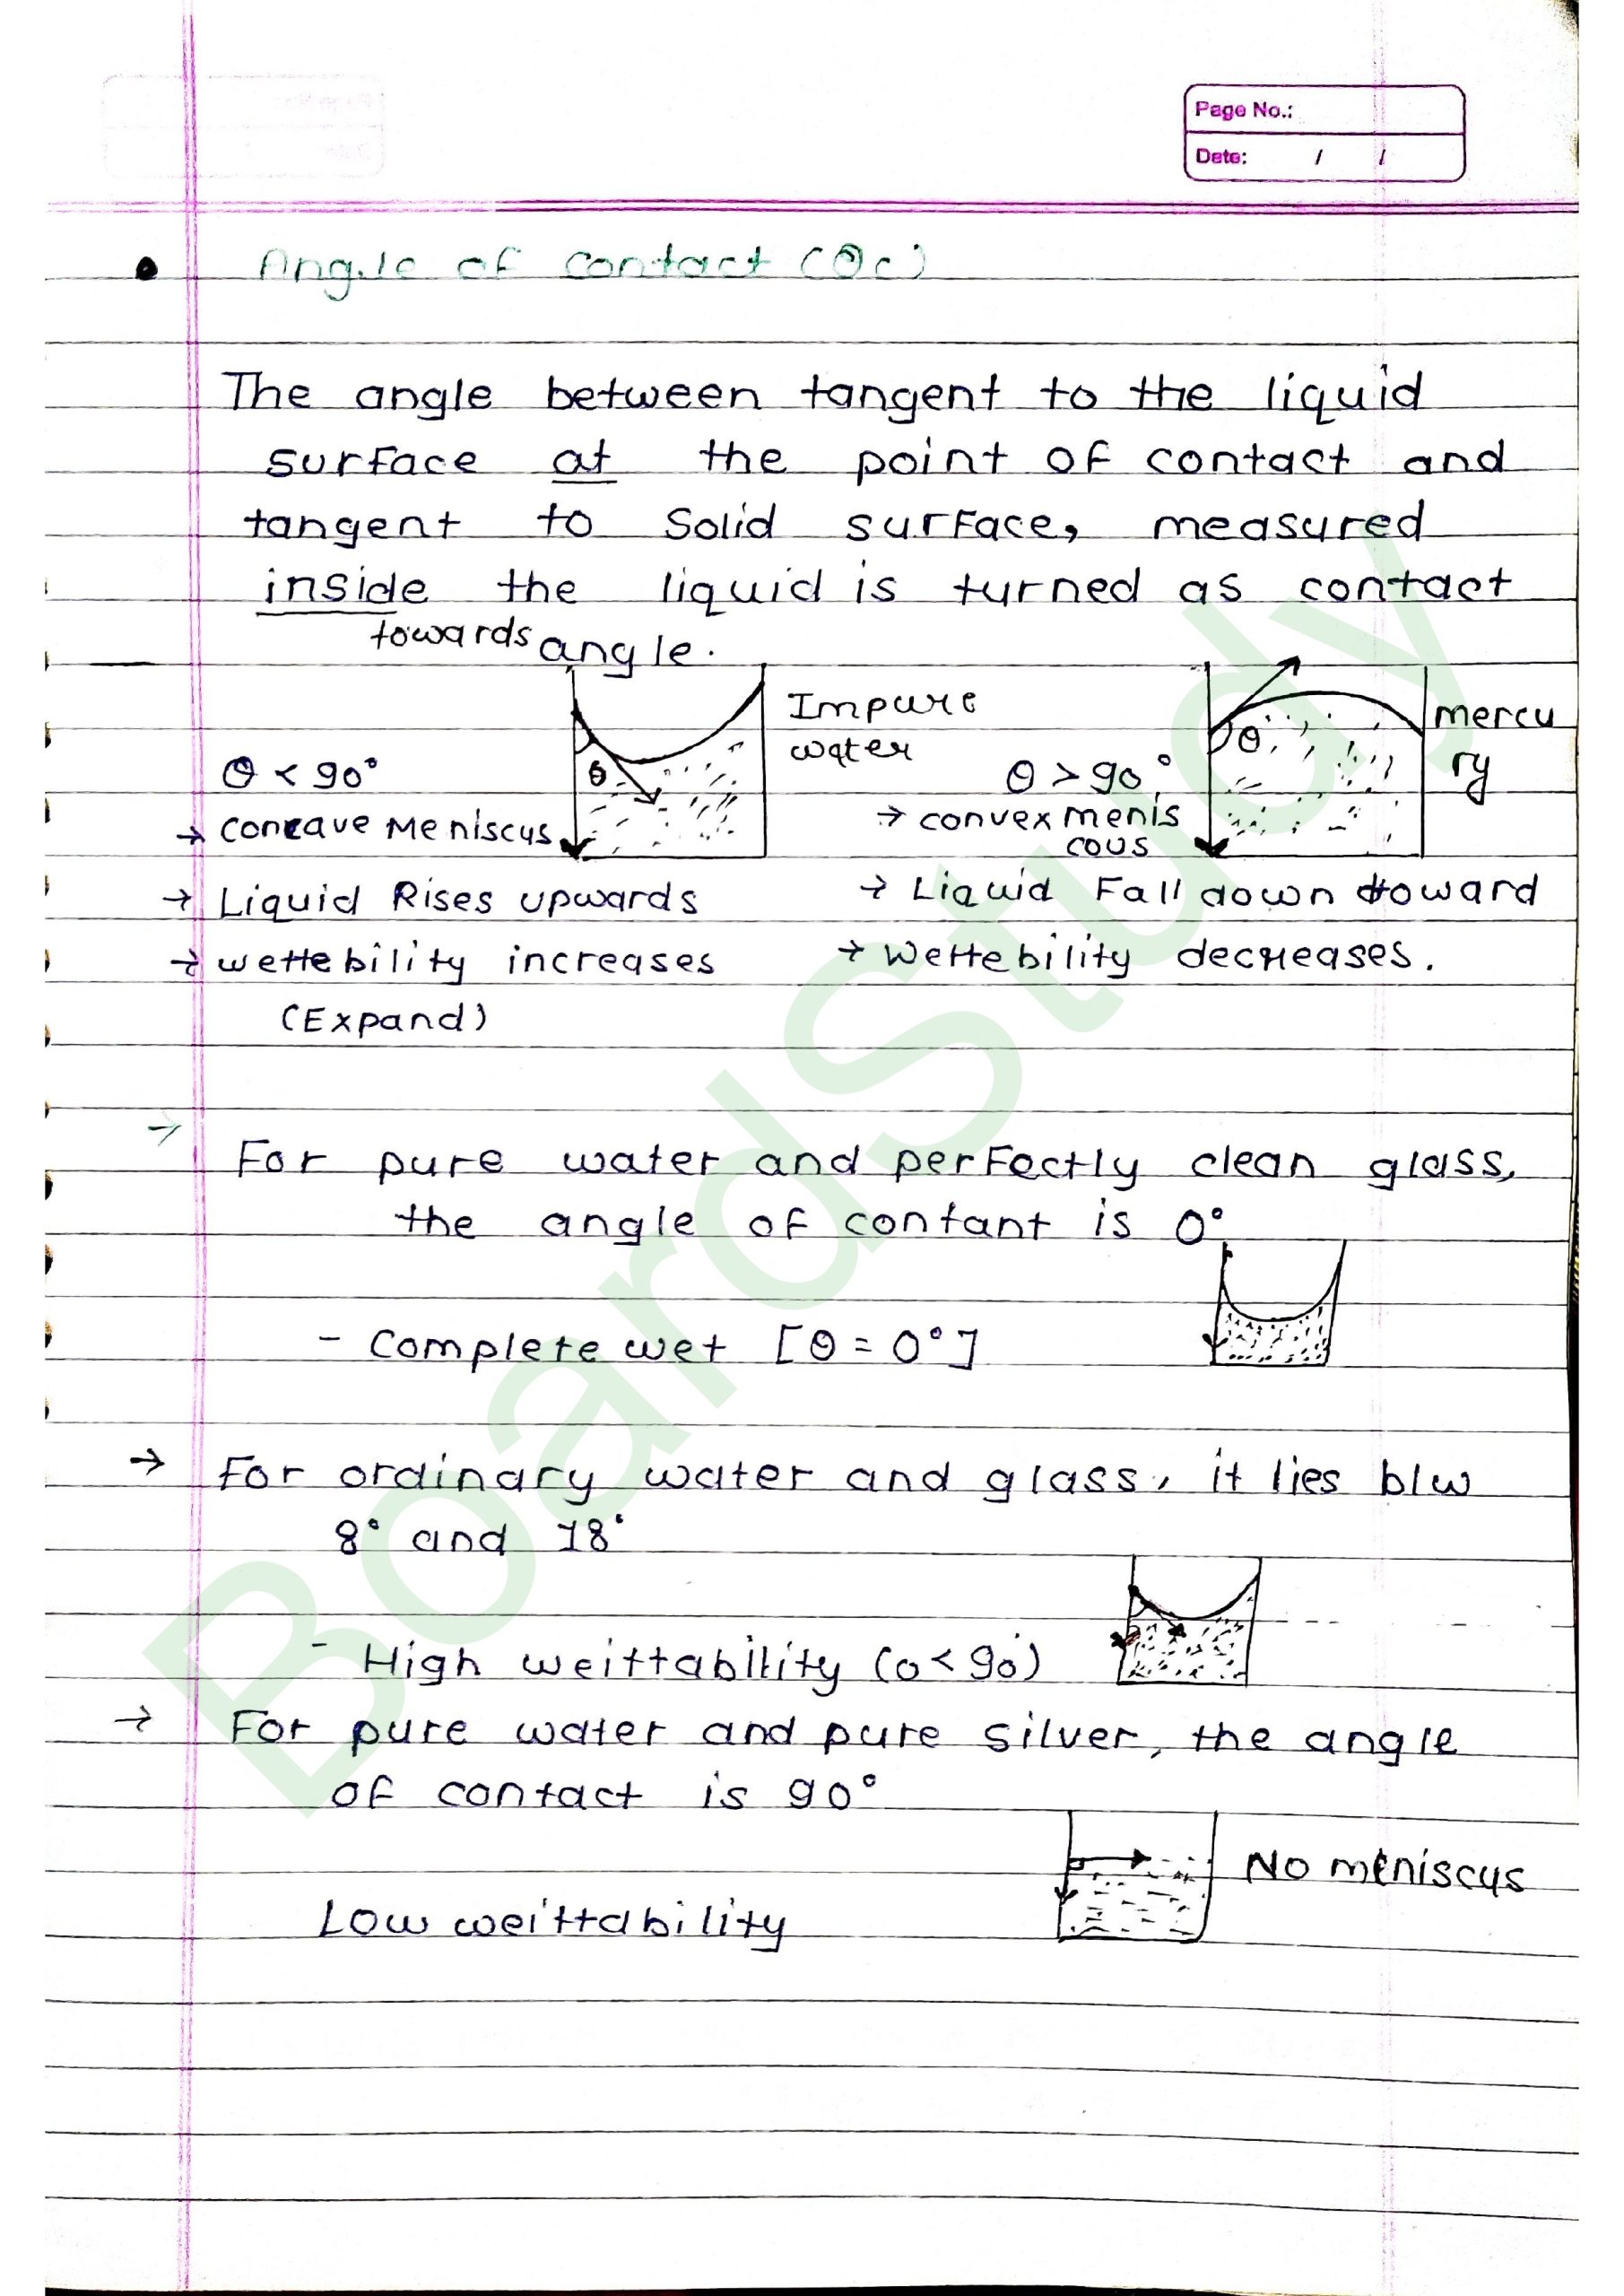 Page No.:
Date: / /
Angle of contact (θc)
The angle between tangent to the liquid
surface at the point of contact and
tangent to solid surface, measured
inside the liquid is turned as contact
towards angle.
Impure
water
θ
θ < 90°
→ Concave Meniscus
→ Liquid Rises upwards
→ wettebility increases
(Expand)
mercu
ry
θ
θ > 90°
→ convex menis
cous
→ Liquid Fall down toward
→ Wettebility decreases.
→
For pure water and perfectly clean glass,
the angle of contant is 0°
- Complete wet [θ = 0°]
→ For ordinary water and glass, it lies b/w
8° and 18°
- High weittability (o < 90°)
→ For pure water and pure silver, the angle
of contact is 90°
No meniscus
Low weittability
BoardStudy